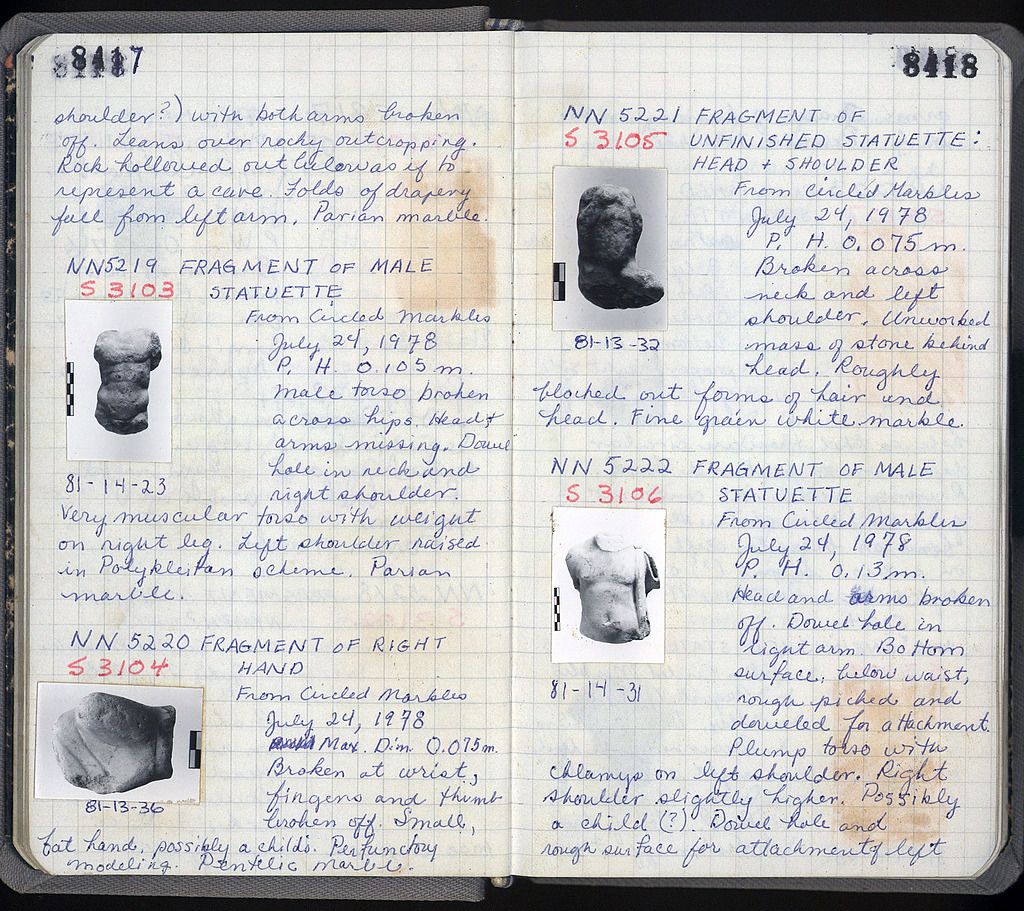 8417
shoulder?) with both arms broken
off. Leans over rocky outcropping.
Rock hollowed out below as if to
represent a cave. Folds of drapery
fall from left arm. Parian marble.
NN5219 FRAGMENT OF MALE
S 3103 STATUETTE
From Circled Marbles
July 24, 1978
P. H. 0.105 m.
Male torso broken
across hips. Head &
arms missing. Dowel
hole in neck and
right shoulder.
81-14-23
Very muscular torso with weight
on right leg. Left shoulder raised
in Polykleitan scheme. Parian
marble.
NN 5220 FRAGMENT OF RIGHT
S 3104 HAND
From Circled Marbles
July 24, 1978
Max. Dim. 0.075m.
Broken at wrist,
fingers and thumb
broken off. Small,
81-13-36
fat hand, possibly a childs. Perfunctory
modeling. Pentelic marble.
8418
NN 5221 FRAGMENT OF
S 3105 UNFINISHED STATUETTE:
HEAD + SHOULDER
From Circled Marbles
July 24, 1978
P. H. 0.075m.
Broken across
neck and left
shoulder. Unworked
81-13-32
mass of stone behind
head. Roughly
blocked out forms of hair and
head. Fine grain white marble.
NN 5222 FRAGMENT OF MALE
S 3106 STATUETTE
From Circled Marbles
July 24, 1978
P. H. 0.13m.
Head and arms broken
off. Dowel hole in
right arm. Bottom
surface, below waist,
81-14-31
rough picked and
doweled for attachment.
Plump torso with
chlamys on left shoulder. Right
shoulder slightly higher. Possibly
a child (?). Dowel hole and
rough surface for attachment of left